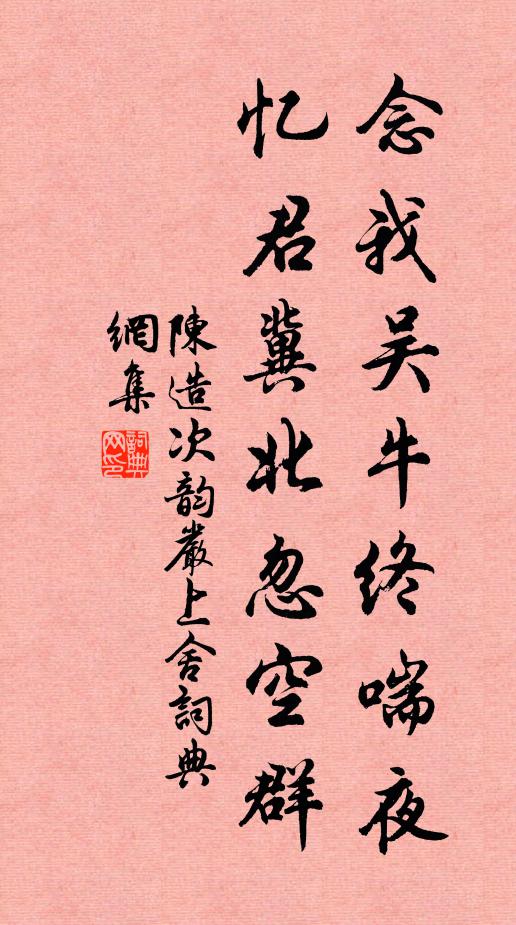 念我吴牛终喘夜
忆君冀北忽空群
陳造次韵嚴上舍詞典
網集
詞典
网印